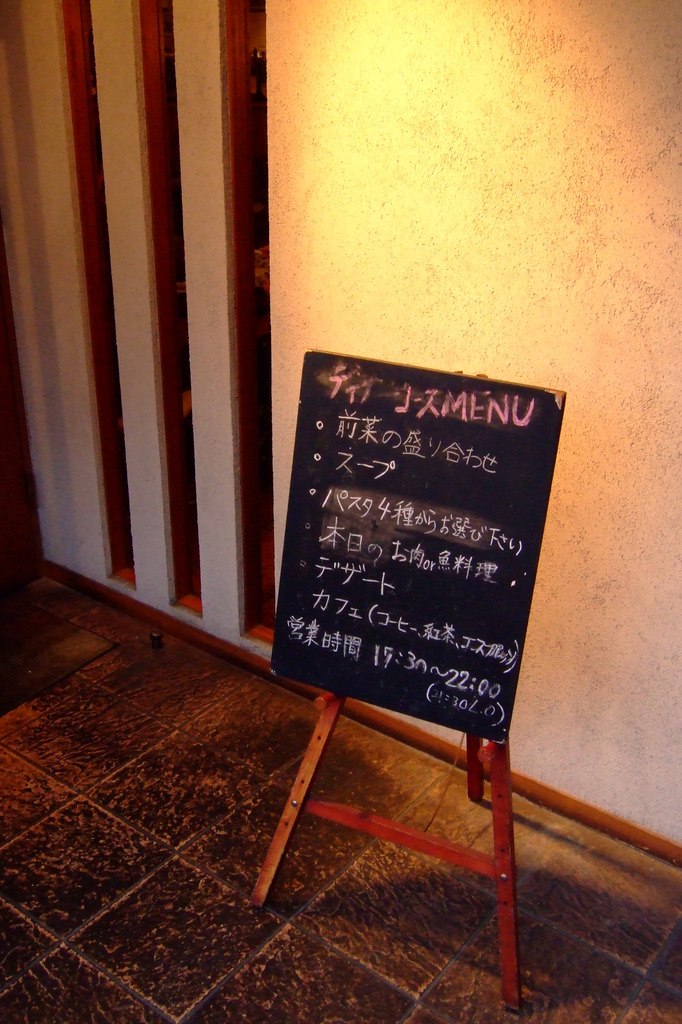 ディナーコースMENU
前菜の盛り合わせ
スープ
パスタ4種からお選び下さい
本日のお肉or魚料理
デザート
カフェ(コーヒー、紅茶、エスプレッソ)
営業時間 17:30~22:00
(21:30L.O)